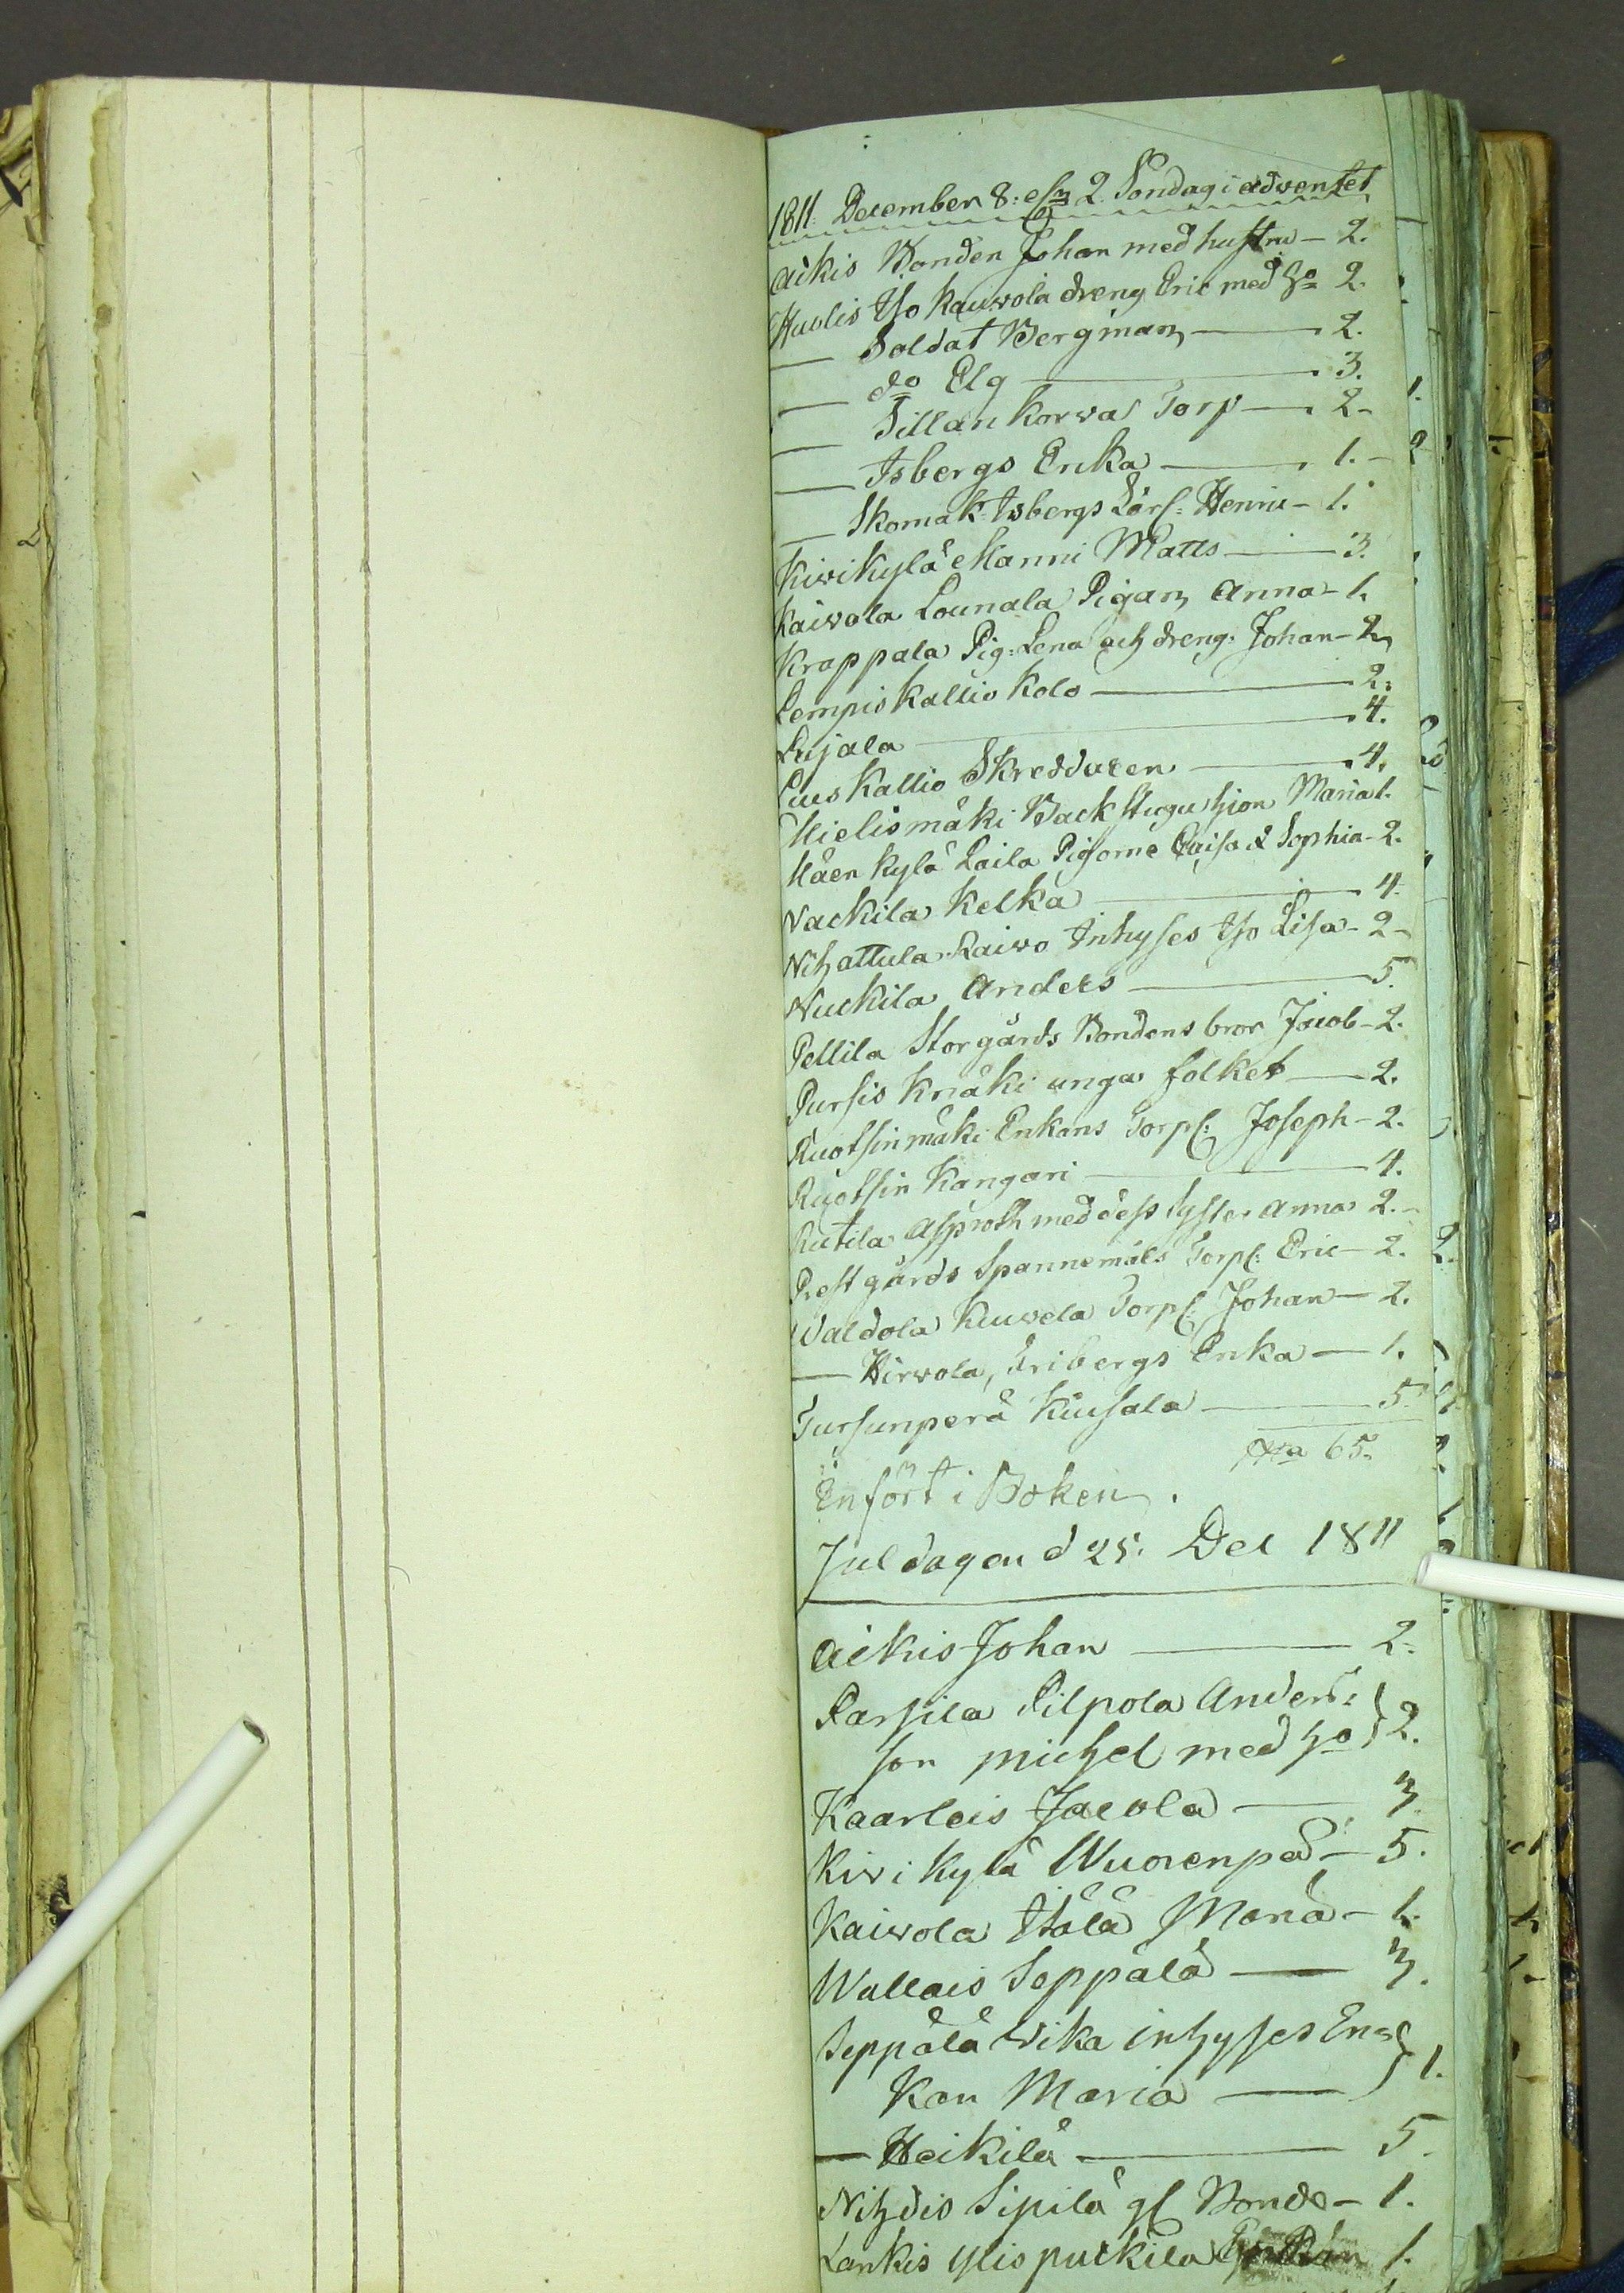 1811. December 8: 2. Söndag i adventet
Äikis Bonden Johan med hustru - 2.
Huolis Iso Kauvola dreng Eric med ho 2.
— Soldat Bergman — 2.
— do Elg — 3.
— Sillankorva Torp — 2-
— Isbergs Enka — 1.
— Skomak: Isbergs Lärl: Henric - 1.
Kivikylä Manni Matts — 3.
Kaivola Lounala Pigan Anna - 1.
Krappala Pig: Lena och dreng: Johan - 2.
Lempiskallio Kolo — 2.
Lujala — 4.
Luuskallio Skreddaren — 4.
Mielismäki Backstugu hion Maria 1.
Mäenkylä Laila Pigorne Caisa & Sophia - 2.
Nackila Kelka — 4.
Nihattula Raivo Inhyses Iso Lisa - 2-
Nuckila Anders — 5.
Pellila Storgårds Bondens bror Jacob - 2.
Pursis Knäki unga folket — 2.
Ruotsinmäki Enkans Torp: Joseph - 2.
Ruotsin Kangari — 4.
Rutila Asproth med dess Syster Anna 2.
Prestgårds Spannemåls Torp: Eric - 2.
Valdola Kuuvela Torp: Johan - 2.
— Hirvola, Fribergs Enka — 1.
Tursunperä Kiusala — 5.
65.
Enfört i Boken.
Juldagen d 25. Dec 1811
Äikiis Johan — 2.
Parsila Pilpola Anders:
son Michel med ho } 2.
Kaarlois Jacola — 3.
Kivikylä Wuorenpä - 5.
Kaivola Itälä Maria - 1.
Wallais Seppälä — 3.
Seppälä Wika inhyses En=
kan Maria — } 1.
— Heikilä — 5.
Nihdis Sipilä gl Bonde - 1.
Lankis Ylispuckila 1.